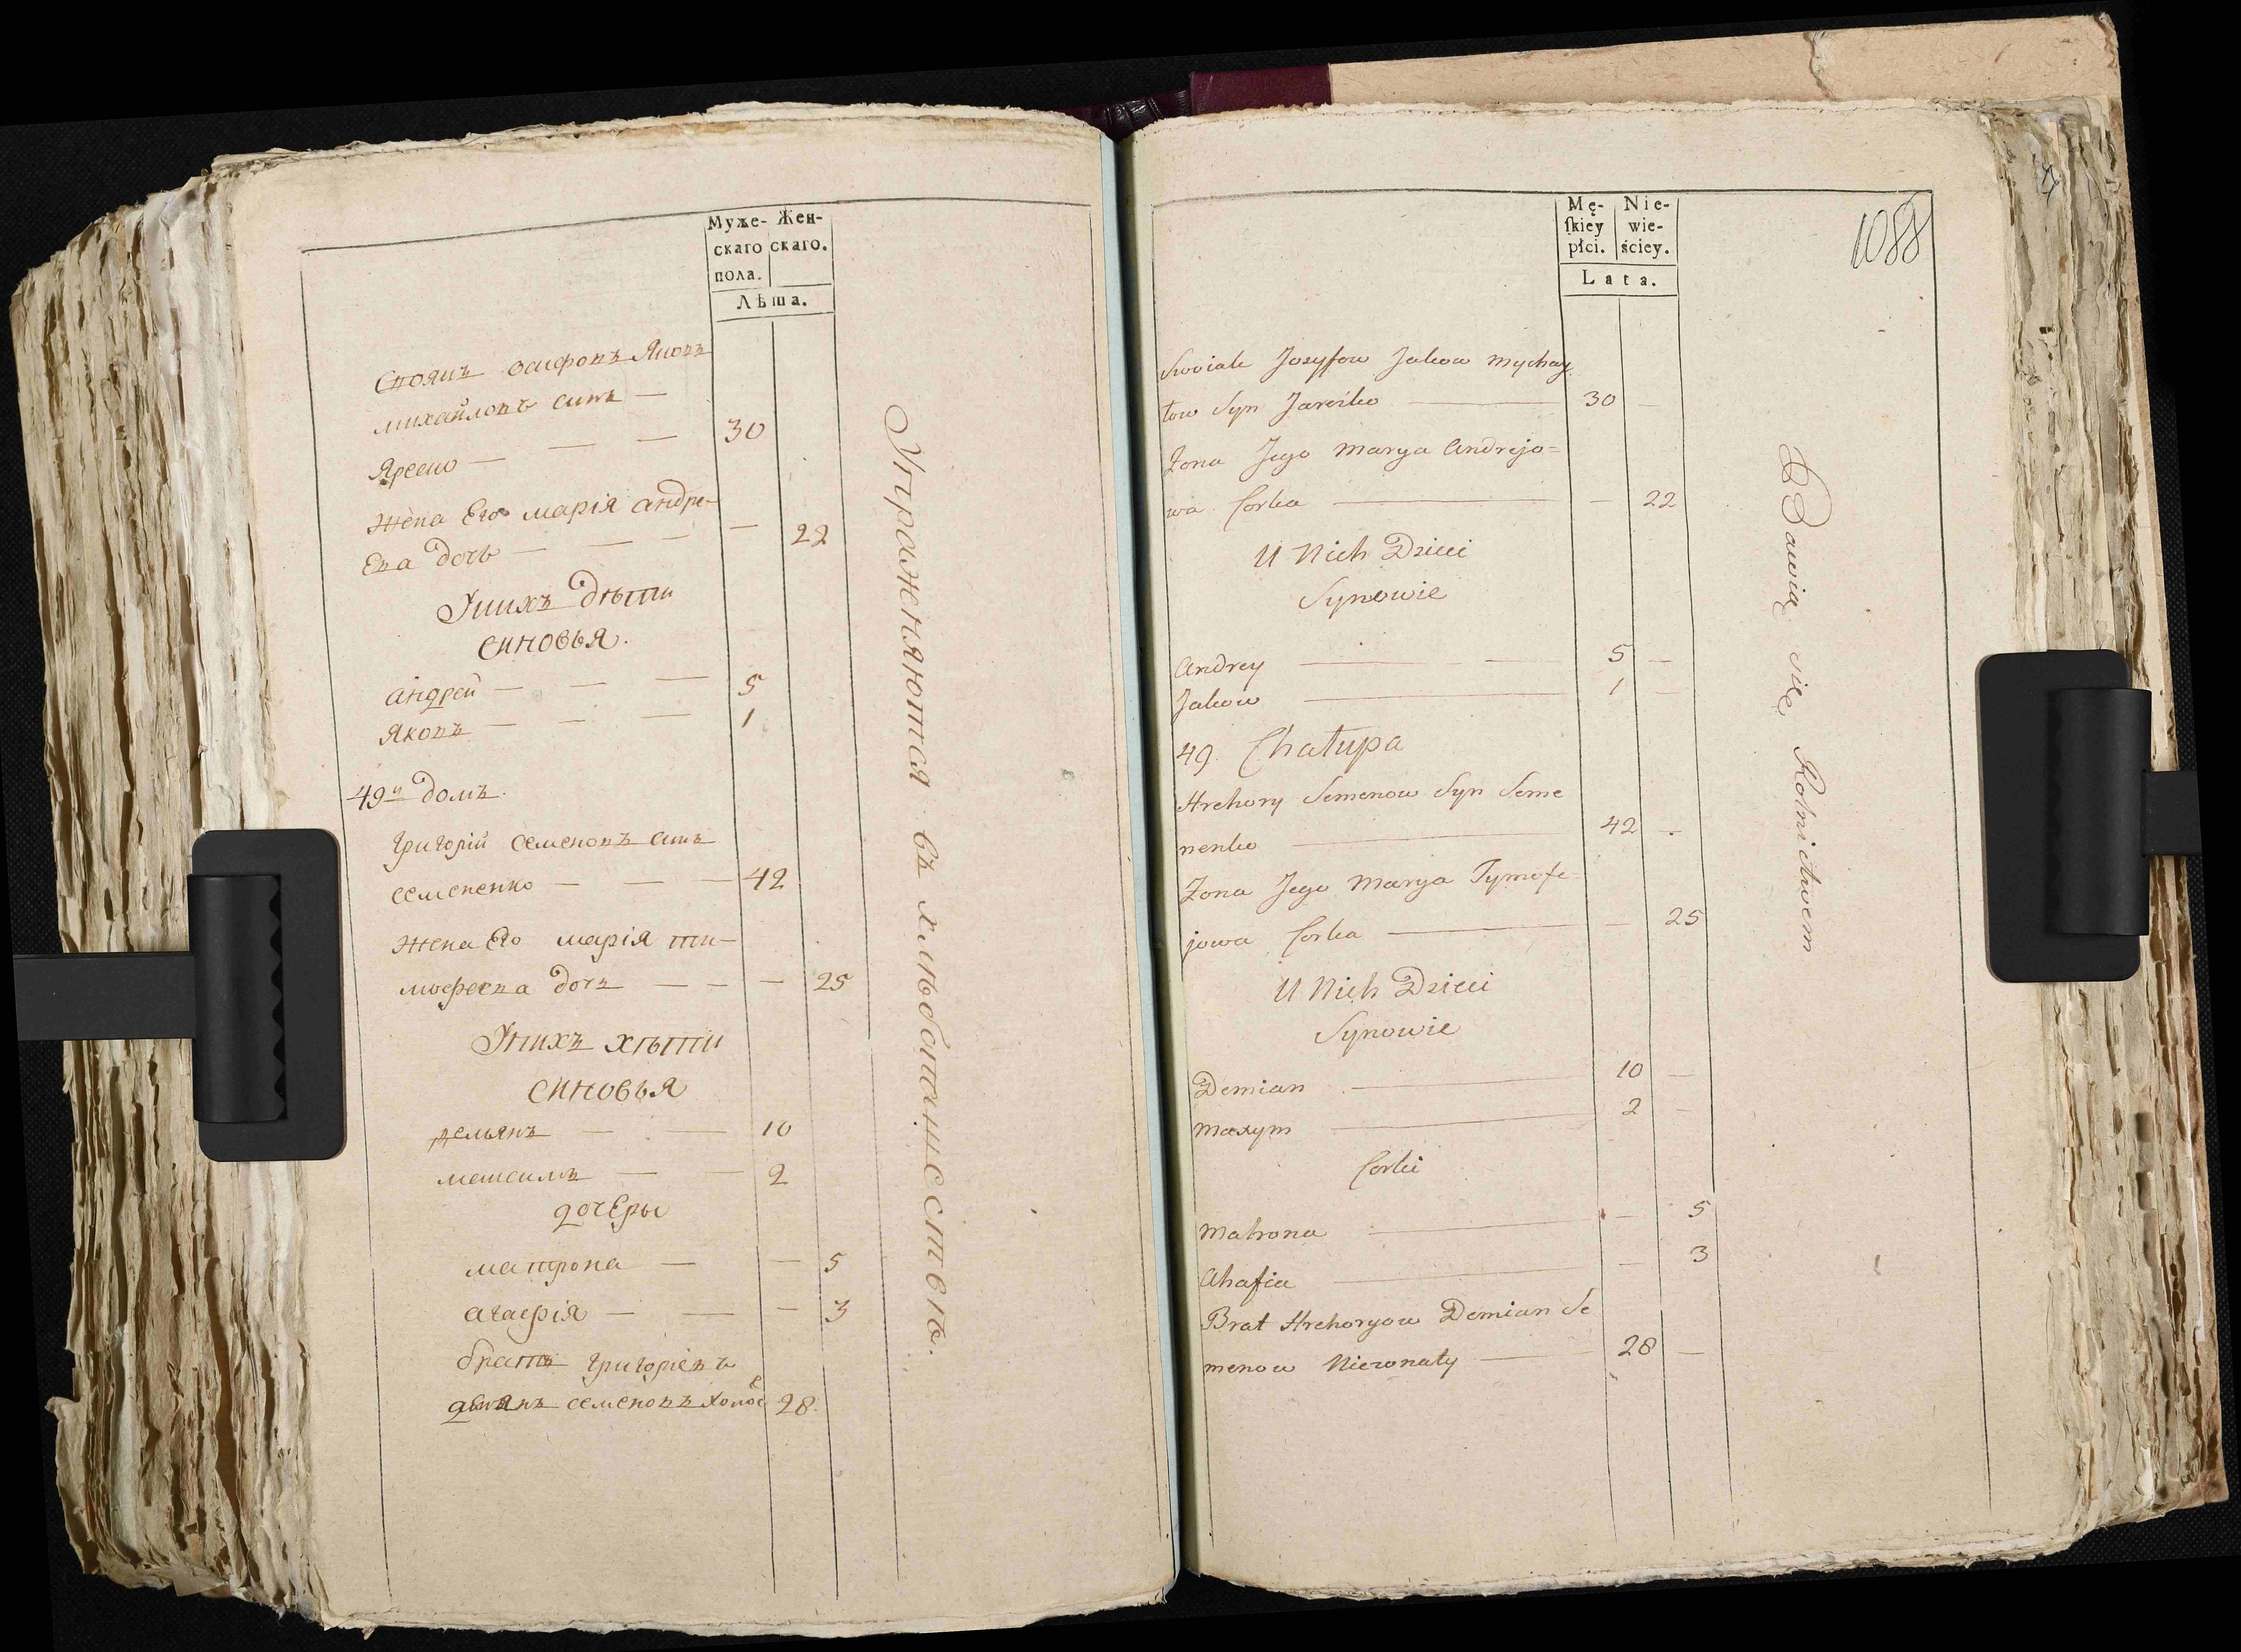 Муже- Жен-
скаго скаго.
пола.
Лѣта.
своякъ осифовъ Яковъ
михайловъ синъ —
Ярсско — — — 30
жена Его марія андре-
Ева дочь — — — — 22
Унихъ дѣти
синовья.
андрей — — — 5
Яковъ — — — 1
49й домъ.
григорій семеновъ синъ
семененко — — — 42
жена Его марія ти-
мофеева дочъ — — — 25
Унихъ хѣти
синовья
демьянъ — — 10
максимъ — — 2
дочЕры
матрона — — 5
агафія — — — 3
братъ григоріевъ
демянъ семеновъ холос 28.
Упражняются въ хлѣбопашествѣ.
1088
Mę- Nie-
skiey wie-
płci. ściey.
Lata.
Swoiak Jozyfow Jakow Mychay
łow Syn Jareśko — 30 —
Żona Jego Marya Andrejo=
wa Corka — — 22
U Nich Dzieci
Synowie
Andrey — — 5 —
Jakow — 1 —
49. Chałupa
Hrehory Semenow Syn Seme
nenko — 42 —
Żona Jego Marya Tymofe-
jowa Corka — — 25
U Nich Dzieci
Synowie
Demian — 10 —
Maxym — 2 —
Corki
Matrona — — 5
Ahafia — — 3
Brat Hrehoryow Demian Se
menow Nieżonaty — 28 —
Bawią się Rolnictwem